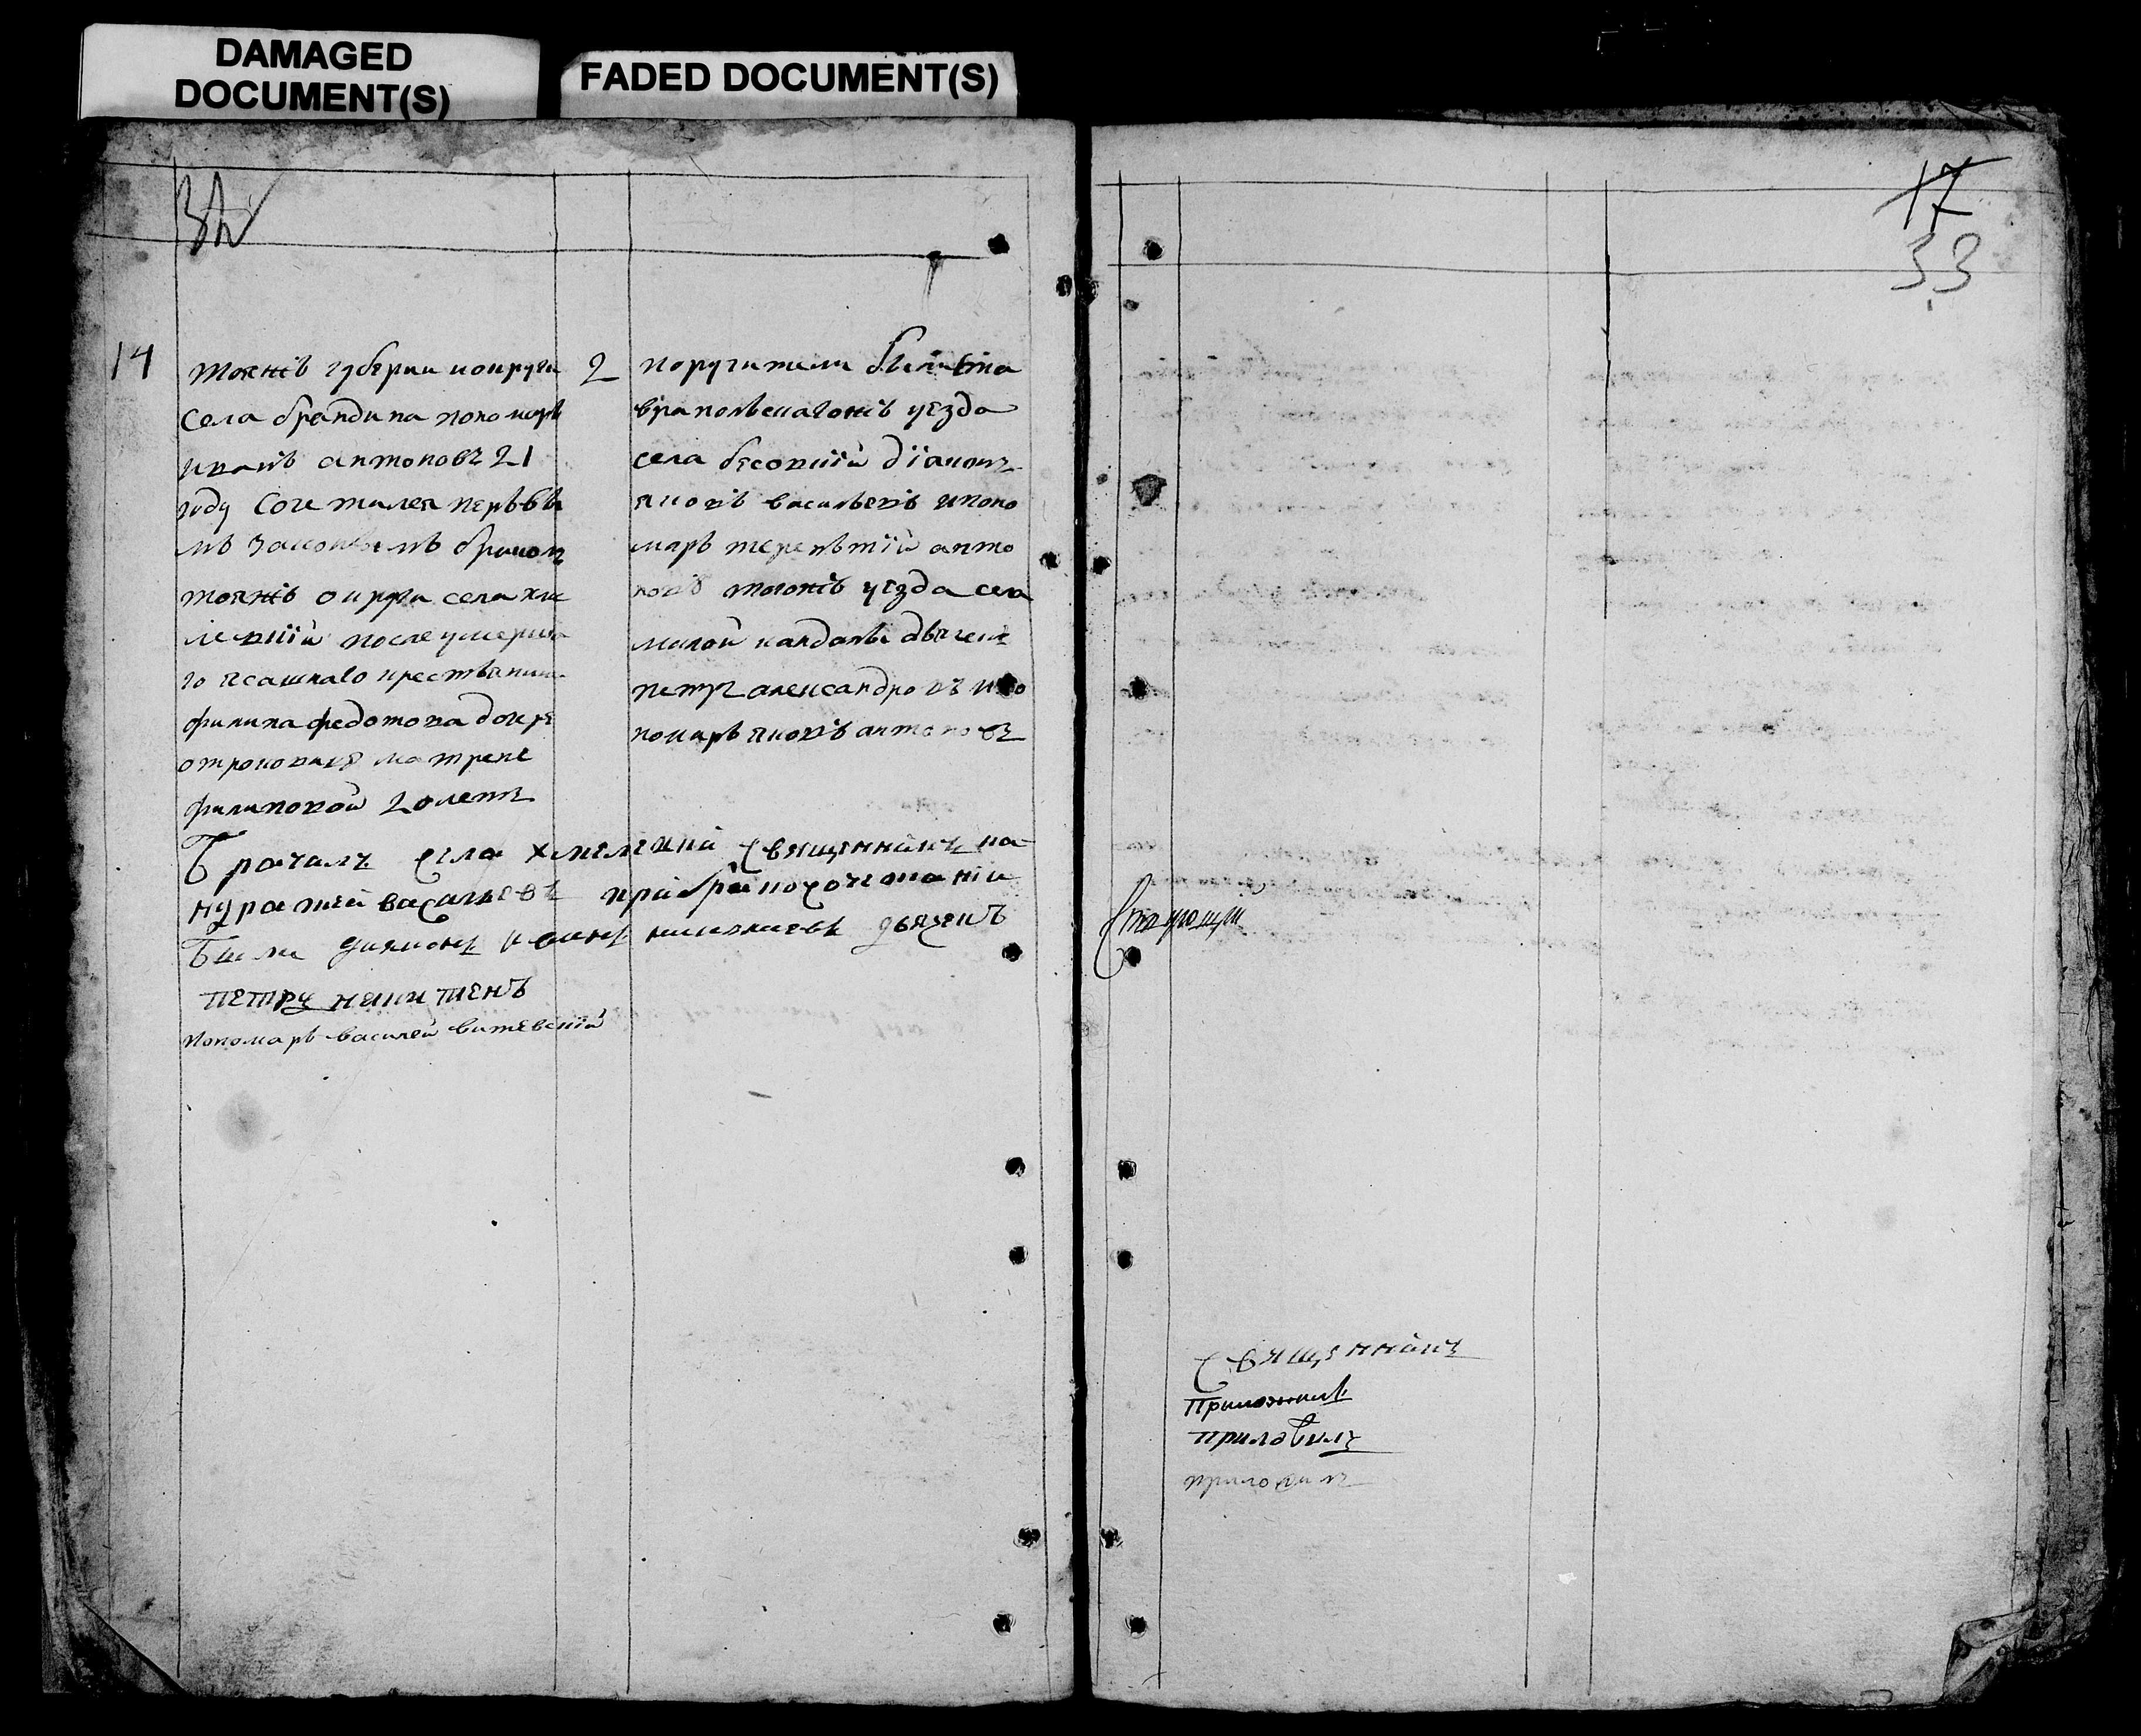 DAMAGED
DOCUMENT(S)
FADED DOCUMENT(S)
17
33
14
тояжъ губернии иокруги
села брандина пономарь
иванъ антоновъ 21
году сочетался первы
мъ законымъ бракомъ
тояжъ округи села хме
левкій после умерша
го ясашнаго крестьянина
филипа федотова дочере
отроковице матрене
филиповой 20 летъ
2
поручители
уезда
села бесовкій діаконъ
яковъ васильевъ ипоно
марь терентій анто
новъ тогожъ уезда села
малой кандалы дьячекъ
петръ александровъ ипо
номарь яковъ антоновъ
Брачалъ села хмелевкй священникъ
васильевъ при
Были диаконъ дьяченъ
петръ никитенъ
пономарь василей витевскій
священникъ
приложилъ
приложилъ
приложилъ